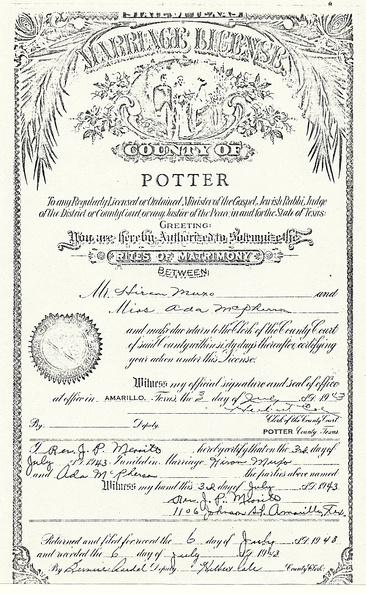 MARRIAGE LICENSE
COUNTY OF
POTTER
To any Regularly Licensed or Ordained Minister of the Gospel, Jewish Rabbi, Judge
of the District or County Court, or any Justice of the Peace, in and for the State of Texas:
GREETING:
You are hereby Authorized to Solemnize the
RITES OF MATRIMONY
BETWEEN
Mr. Hiram and
Miss Ada
and make due return to the Clerk of the County Court
of said County within sixty days thereafter, certifying
your action under this License.
Witness my official signature and seal of office
at office in AMARILLO, Texas, the 3 day of July A.D. 1943
Clerk of the County Court
By Deputy. POTTER County, Texas
I, Rev. J. P. hereby certify that on the 3rd day of
July A.D. 1943 I united in Marriage Hiram
and Ada the parties above named.
Witness my hand this 3rd day of July A.D. 1943.
Rev. J. P.
1106 Johnson St. Amarillo, Tex.
Returned and filed for record the 6 day of July A.D. 1943
and recorded the 6 day of July 1943
By Deputy County Clerk